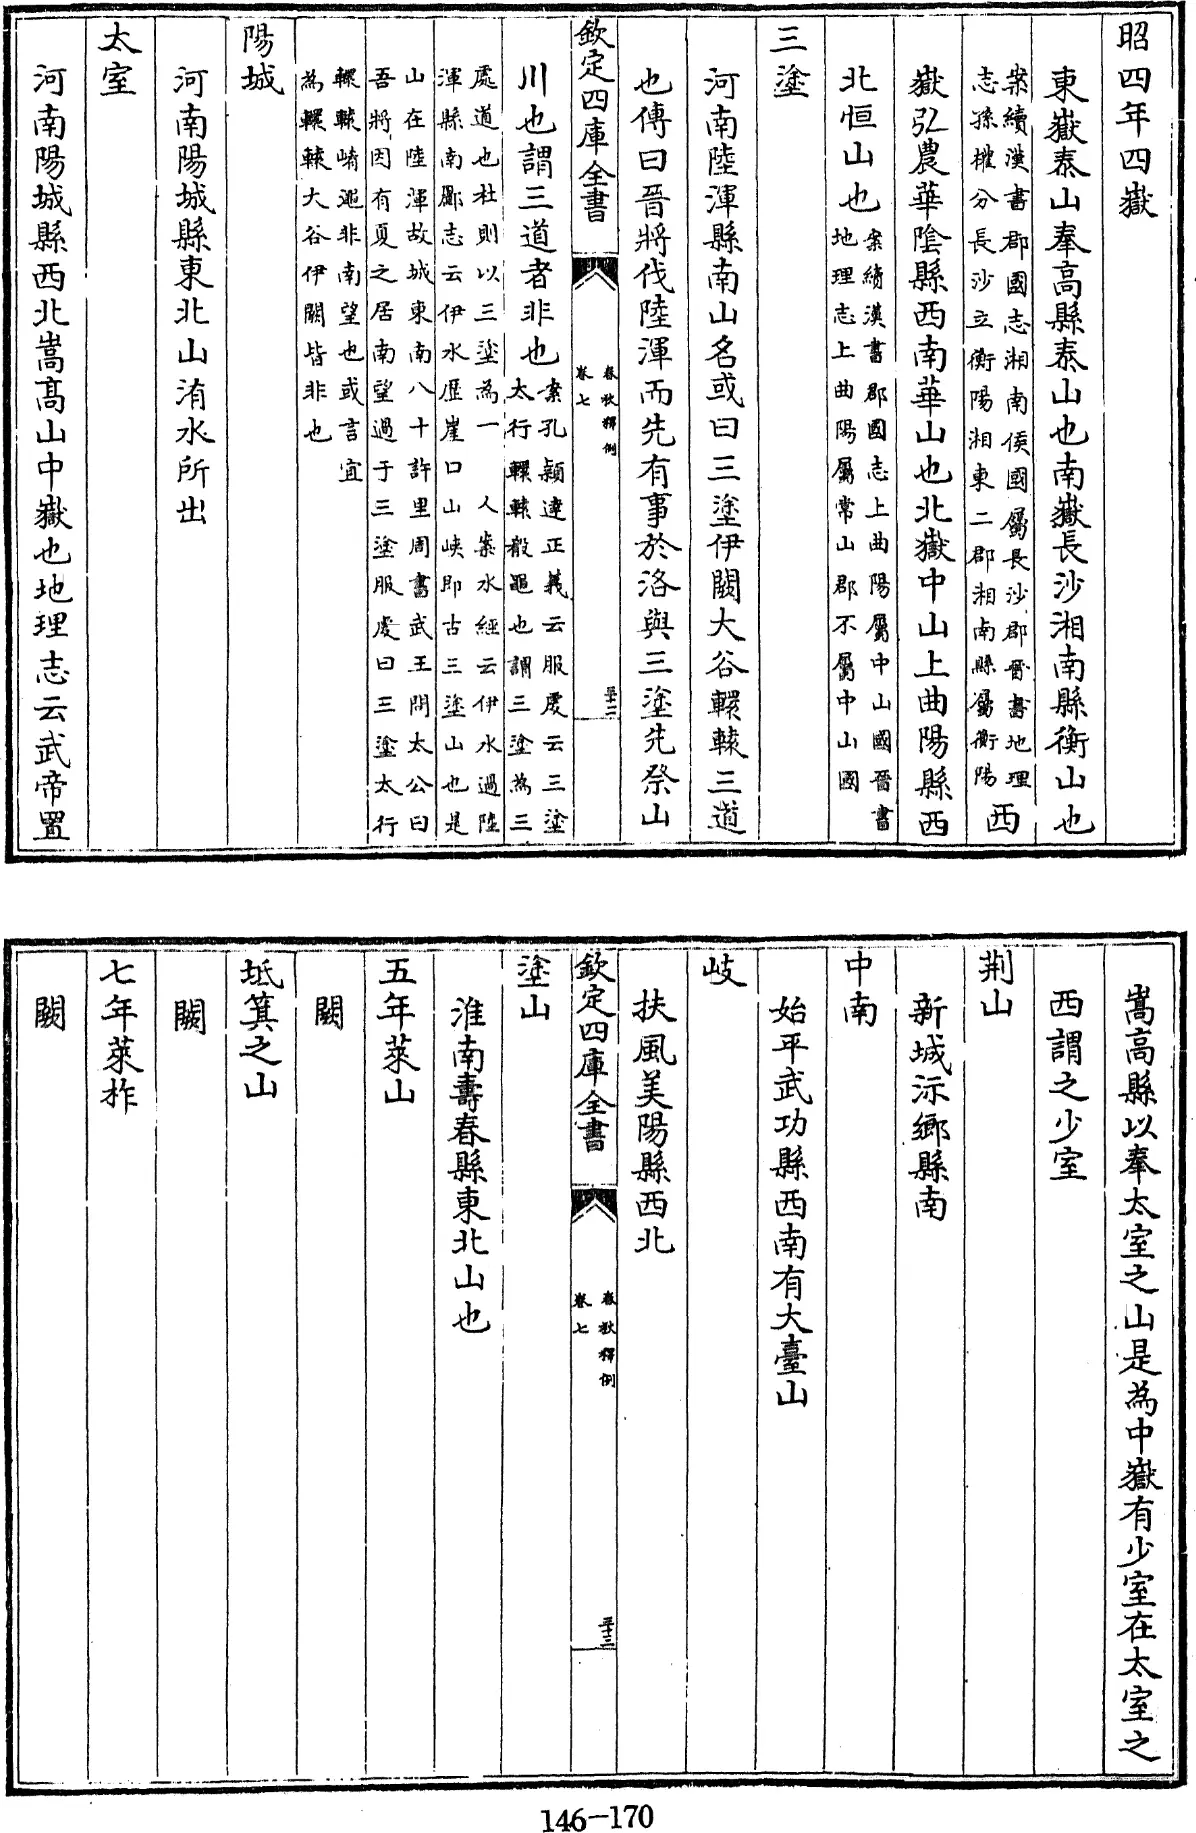 昭四年四嶽
東嶽泰山奉高縣泰山也南嶽長沙湘南縣衡山也
案續漢書郡國志湘南侯國屬長沙郡晉書地理
志孫權分長沙立衡陽湘東二郡湘南縣屬衡陽
西
嶽弘農華陰縣西南華山也北嶽中山上曲陽縣西
北恒山也
案續漢書郡國志上曲陽屬中山國晉書
地理志上曲陽屬常山郡不屬中山國
三塗
河南陸渾縣南山名或曰三塗伊闕大谷轘轅三道
也傳曰晉將伐陸渾而先有事於洛與三塗先祭山
欽定四庫全書
春秋釋例
卷七
三十二
川也謂三道者非也
案孔穎達正義云服虔云三塗
太行轘轅殽黽也謂三塗為三
處道也杜則以三塗為一 人案水經云伊水過陸
渾縣南酈志云伊水歷崖口山峽即古三塗山也是
山在陸渾故城東南八十許里周書武王問太公曰
吾將因有夏之居南望過于三塗服虔曰三塗太行
轘轅崤黽非南望也或言宜
為轘轅大谷伊闕皆非也
陽城
河南陽城縣東北山洧水所出
太室
河南陽城縣西北嵩髙山中嶽也地理志云武帝置
嵩高縣以奉太室之山是為中嶽有少室在太室之
西謂之少室
荆山
新城沶鄉縣南
中南
始平武功縣西南有大臺山
岐
扶風美陽縣西北
欽定四庫全書
春秋釋例
卷七
三十三
塗山
淮南壽春縣東北山也
五年萊山
闕
坻箕之山
闕
七年萊柞
闕
146-170